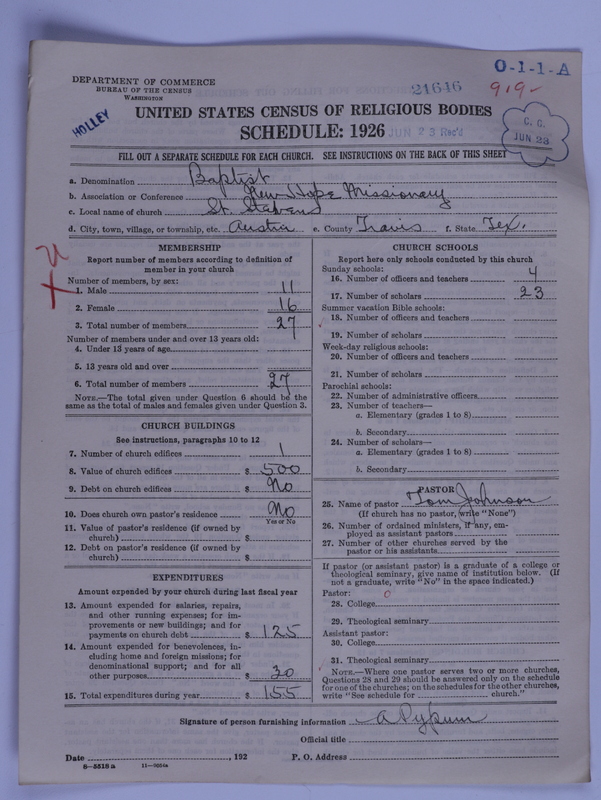 DEPARTMENT OF COMMERCE
BUREAU OF THE CENSUS
WASHINGTON
HOLLEY
21646
O-1-1-A
919-
UNITED STATES CENSUS OF RELIGIOUS BODIES
SCHEDULE: 1926
JUN 23 Rec'd
C. C.
JUN 23
FILL OUT A SEPARATE SCHEDULE FOR EACH CHURCH. SEE INSTRUCTIONS ON THE BACK OF THIS SHEET
a. Denomination Baptist
b. Association or Conference New Hope Missionary
c. Local name of church St. Stevens
d. City, town, village, or township, etc. Austin e. County Travis f. State Tex.
MEMBERSHIP
Report number of members according to definition of
member in your church
Number of members, by sex:
1. Male 11
2. Female 16
3. Total number of members 27
Number of members under and over 13 years old:
4. Under 13 years of age
5. 13 years old and over
6. Total number of members 27
NOTE.—The total given under Question 6 should be the
same as the total of males and females given under Question 3.
CHURCH BUILDINGS
See instructions, paragraphs 10 to 12
7. Number of church edifices 1
8. Value of church edifices $ 500
9. Debt on church edifices $ No
10. Does church own pastor's residence No
Yes or No
11. Value of pastor's residence (if owned by
church) $
12. Debt on pastor's residence (if owned by
church) $
EXPENDITURES
Amount expended by your church during last fiscal year
13. Amount expended for salaries, repairs,
and other running expenses; for im-
provements or new buildings; and for
payments on church debt $ 125
14. Amount expended for benevolences, in-
cluding home and foreign missions; for
denominational support; and for all
other purposes $ 30
15. Total expenditures during year $ 155
CHURCH SCHOOLS
Report here only schools conducted by this church
Sunday schools:
16. Number of officers and teachers 4
17. Number of scholars 23
Summer vacation Bible schools:
18. Number of officers and teachers
19. Number of scholars
Week-day religious schools:
20. Number of officers and teachers
21. Number of scholars
Parochial schools:
22. Number of administrative officers
23. Number of teachers—
a. Elementary (grades 1 to 8)
b. Secondary
24. Number of scholars—
a. Elementary (grades 1 to 8)
b. Secondary
PASTOR
25. Name of pastor Tom Johnson
(If church has no pastor, write "None")
26. Number of ordained ministers, if any, em-
ployed as assistant pastors
27. Number of other churches served by the
pastor or his assistants
If pastor (or assistant pastor) is a graduate of a college or
theological seminary, give name of institution below. (If
not a graduate, write "No" in the space indicated.)
Pastor: 0
28. College
29. Theological seminary
Assistant pastor:
30. College
31. Theological seminary
NOTE.—Where one pastor serves two or more churches,
Questions 28 and 29 should be answered only on the schedule
for one of the churches; on the schedules for the other churches,
write "See schedule for church."
Signature of person furnishing information
Official title
Date , 192 P. O. Address
8-5518 a 11-9034a